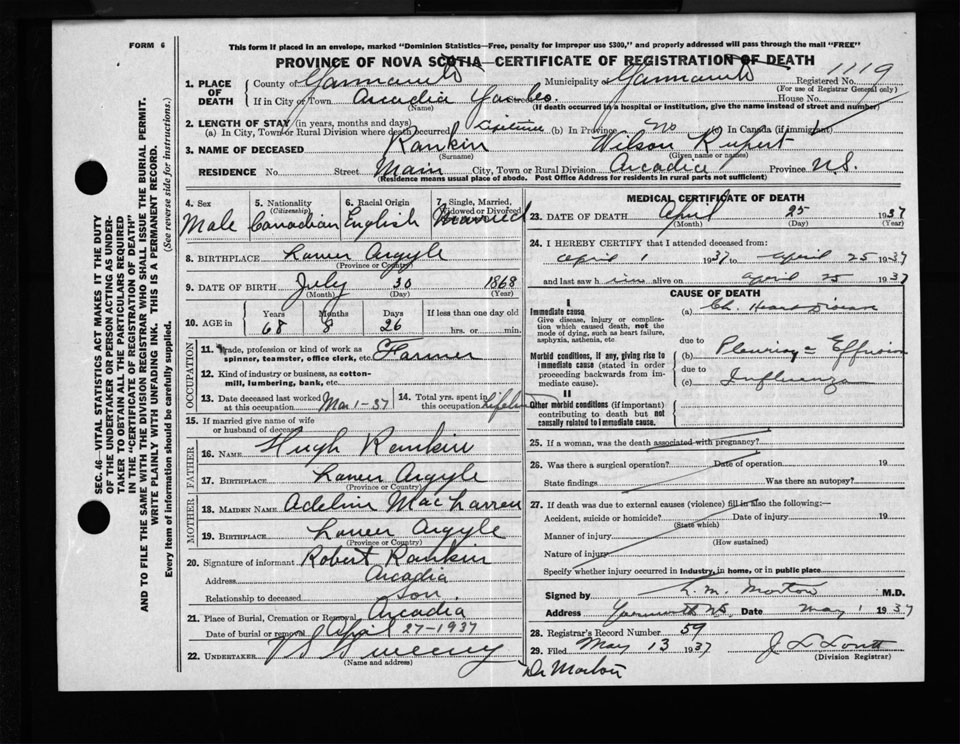 FORM 6
This form if placed in an envelope, marked "Dominion Statistics—Free, penalty for improper use $300," and properly addressed will pass through the mail "FREE"
PROVINCE OF NOVA SCOTIA—CERTIFICATE OF REGISTRATION OF DEATH
1119
1. PLACE OF DEATH
County of Yarmouth Municipality of Yarmouth Registered No.
(For use of Registrar General only)
If in City or Town Arcadia Yar Co. House No.
(Name) (If death occurred in a hospital or institution, give the name instead of street and number)
2. LENGTH OF STAY (in years, months and days)
(a) In City, Town or Rural Division where death occurred Lifetime (b) In Province No (c) In Canada (if immigrant)
3. NAME OF DECEASED Rankin Wilson Rupert
(Surname) (Given name or names)
RESIDENCE No. Street Main City, Town or Rural Division Arcadia Province N.S.
(Residence means usual place of abode. Post Office Address for residents in rural parts not sufficient)
4. Sex Male
5. Nationality (Citizenship) Canadian
6. Racial Origin English
7. Single, Married, Widowed or Divorced Married
8. BIRTHPLACE Lower Argyle
(Province or Country)
9. DATE OF BIRTH July 30 1868
(Month) (Day) (Year)
10. AGE in Years Months Days If less than one day old
68 8 26 hrs. or min.
OCCUPATION
11. Trade, profession or kind of work as spinner, teamster, office clerk, etc. Farmer
12. Kind of industry or business, as cotton-mill, lumbering, bank, etc.
13. Date deceased last worked at this occupation Mar 1-37
14. Total yrs. spent in this occupation Lifetime
15. If married give name of wife or husband of deceased
FATHER
16. NAME Hugh Rankin
17. BIRTHPLACE Lower Argyle
(Province or Country)
MOTHER
18. MAIDEN NAME Adeline MacLarren
19. BIRTHPLACE Lower Argyle
(Province or Country)
20. Signature of informant Robert Rankin
Address Arcadia
Relationship to deceased Son.
21. Place of Burial, Cremation or Removal Arcadia
Date of burial or removal April 27-1937
22. UNDERTAKER Sweeny
(Name and address)
MEDICAL CERTIFICATE OF DEATH
23. DATE OF DEATH April 25 1937
(Month) (Day) (Year)
24. I HEREBY CERTIFY that I attended deceased from:
April 1 1937 to April 25 1937
and last saw h im alive on April 25 1937
CAUSE OF DEATH
I
Immediate cause
Give disease, injury or complication which caused death, not the mode of dying, such as heart failure, asphyxia, asthenia, etc.
(a) Ch. Heart Disease
due to
Morbid conditions, if any, giving rise to immediate cause (stated in order proceeding backwards from immediate cause).
(b) Pleurisy c Effusion
due to
(c) Influenza
II
Other morbid conditions (if important) contributing to death but not causally related to immediate cause.
25. If a woman, was the death associated with pregnancy?
26. Was there a surgical operation? Date of operation 19
State findings Was there an autopsy?
27. If death was due to external causes (violence) fill in also the following:
Accident, suicide or homicide? Date of injury 19
(State which)
Manner of injury
(How sustained)
Nature of injury
Specify whether injury occurred in industry, in home, or in public place
Signed by L. M. Morton M.D.
Address Yarmouth NS Date May 1 1937
28. Registrar's Record Number 59
29. Filed May 13 1937
(Division Registrar)
Dr Morton
SEC. 46—VITAL STATISTICS ACT MAKES IT THE DUTY
OF THE UNDERTAKER OR PERSON ACTING AS UNDER-
TAKER TO OBTAIN ALL THE PARTICULARS REQUIRED
IN THE "CERTIFICATE OF REGISTRATION OF DEATH"
AND TO FILE THE SAME WITH THE DIVISION REGISTRAR WHO SHALL ISSUE THE BURIAL PERMIT.
WRITE PLAINLY WITH UNFADING INK. THIS IS A PERMANENT RECORD.
Every item of information should be carefully supplied. (See reverse side for instructions.)